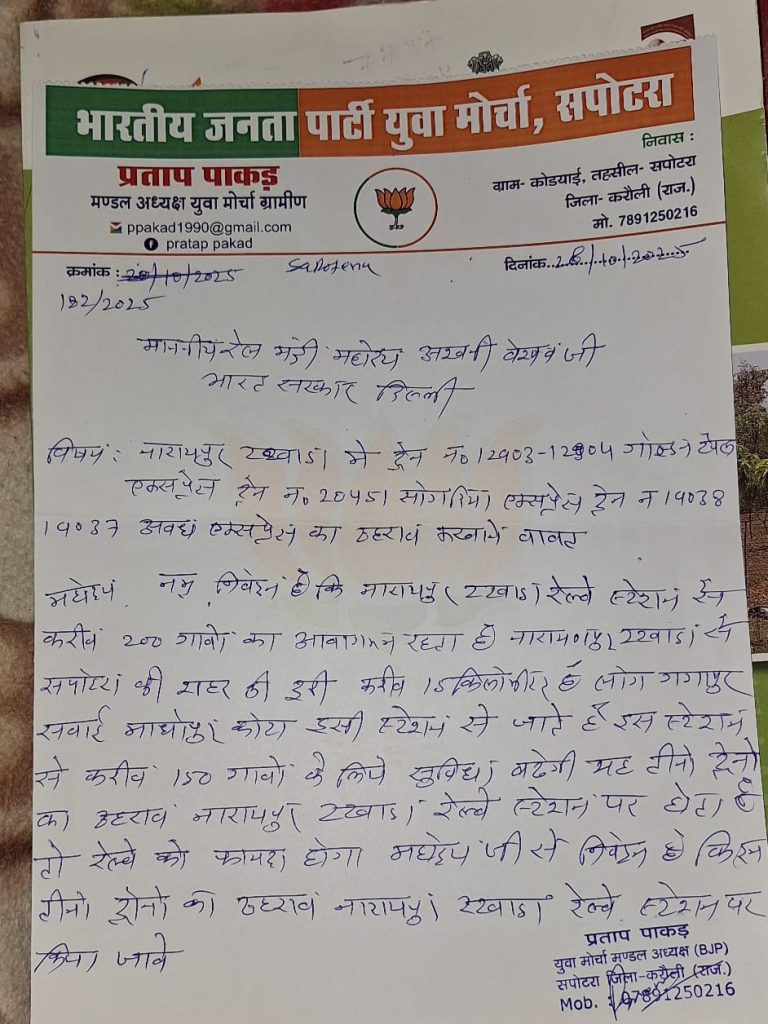 भारतीय जनता पार्टी युवा मोर्चा, सपोटरा
प्रताप पाकड़
मण्डल अध्यक्ष युवा मोर्चा ग्रामीण
ppakad1990@gmail.com
pratap pakad
निवास :
ग्राम- कोडयाई, तहसील- सपोटरा
जिला- करौली (राज.)
मो. 7891250216
क्रमांक : 20/10/2025
182/2025
दिनांक..28/10/2025
माननीय रेल मंत्री महोदय अश्वनी वैष्णव जी
भारत सरकार दिल्ली
विषय : नारायपुर टटवाडा मे ट्रेन न० 12903-12904 गोल्डन टेंपल
एक्सप्रेस ट्रेन न० 20451 सोगरिया एक्सप्रेस ट्रेन न 19038
19037 अवध एक्सप्रेस का ठहराव करवाने वावत
महोदय नम्र निवेदन है कि नारायपुर टटवाडा रेल्वे स्टेशन से
करीव 200 गावों का आवागमन रहता है नारायणपुर टटवाडा से
सपोटरा की शहर की दूरी करीव 15 किलोमीटर है लोग गंगापुर
सवाई माधोपुर कोटा इसी स्टेशन से जाते है इस स्टेशन
से करीव 150 गावों के लिये सुविधा बढेगी यह तीनो ट्रेनो
का ठहराव नारायपुर टटवाडा रेल्वे स्टेशन पर होता है
तो रेल्वे को फायदा होगा महोदय जी से निवेदन है कि इन
तीनो ट्रेनो का ठहराव नारायपुर टटवाडा रेल्वे स्टेशन पर
किया जावे
प्रताप पाकड़
युवा मोर्चा मण्डल अध्यक्ष (BJP)
सपोटरा जिला-करौली (राज.)
Mob. : 07891250216